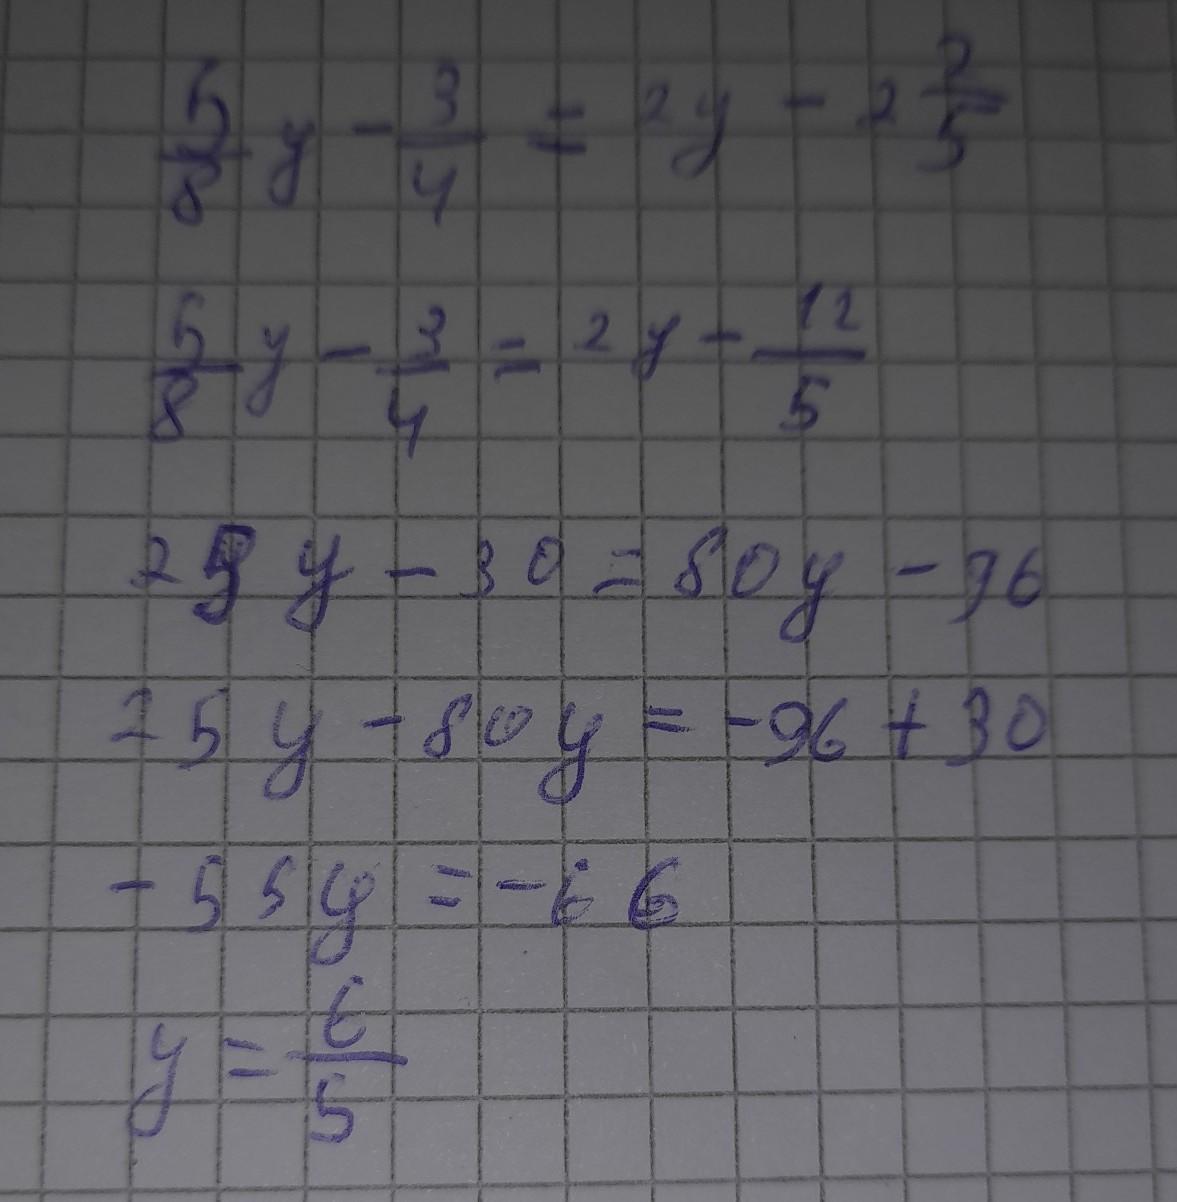 5/8 y - 3/4 = 2y - 2 2/5
5/8 y - 3/4 = 2y - 12/5
25y - 30 = 80y - 96
25y - 80y = -96 + 30
-55y = -66
y = 6/5